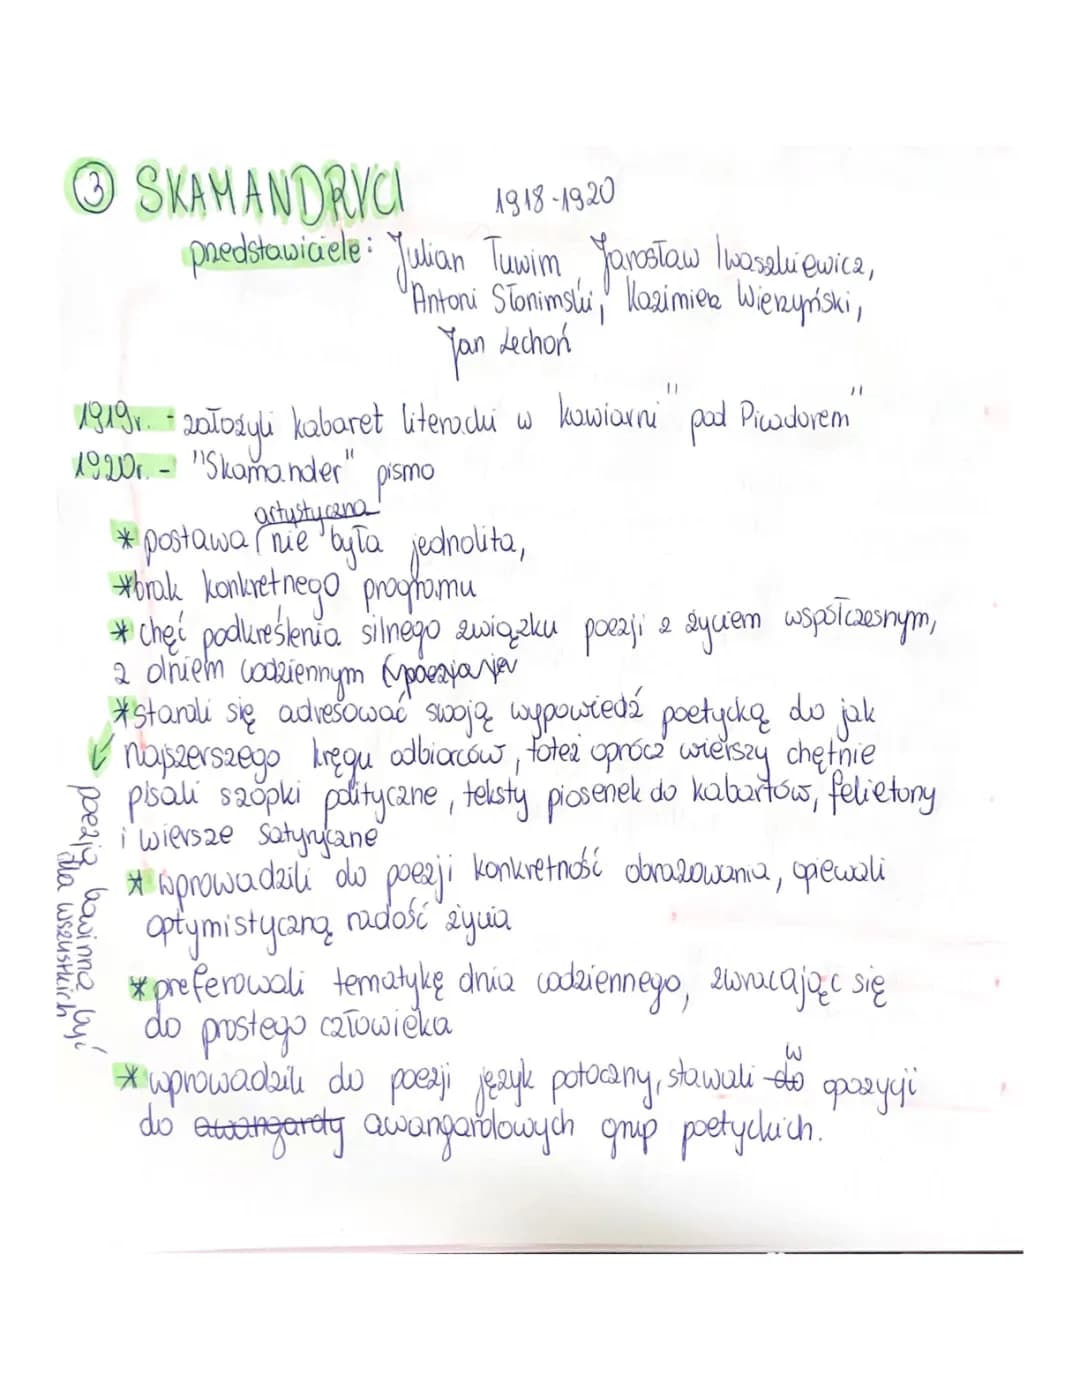 ③ SKAMANDRYCI 1918-1920
przedstawiciele: Julian Tuwim, Jarosław Iwaszkiewicz,
Antoni Słonimski, Kazimierz Wierzyński,
Jan Lechoń
1919r. - założyli kabaret literacki w kawiarni "pod Picadorem"
1920r. - "Skamander" pismo
artystyczna
* postawa nie była jednolita,
* brak konkretnego programu
* chęć podkreślenia silnego związku poezji z życiem współczesnym,
z dniem codziennym
* starali się adresować swoją wypowiedź poetycką do jak
najszerszego kręgu odbiorców, toteż oprócz wierszy chętnie
pisali szopki polityczne, teksty piosenek do kabartów, felietony
i wiersze satyryczne
poezja powinna być
dla wszystkich
* wprowadzili do poezji konkretność obrazowania, opiewali
optymistyczną radość życia
* preferowali tematykę dnia codziennego, zwracając się
do prostego człowieka
w
* wprowadzili do poezji język potoczny, stawali do opozycji
do awangardy awangardowych grup poetyckich.